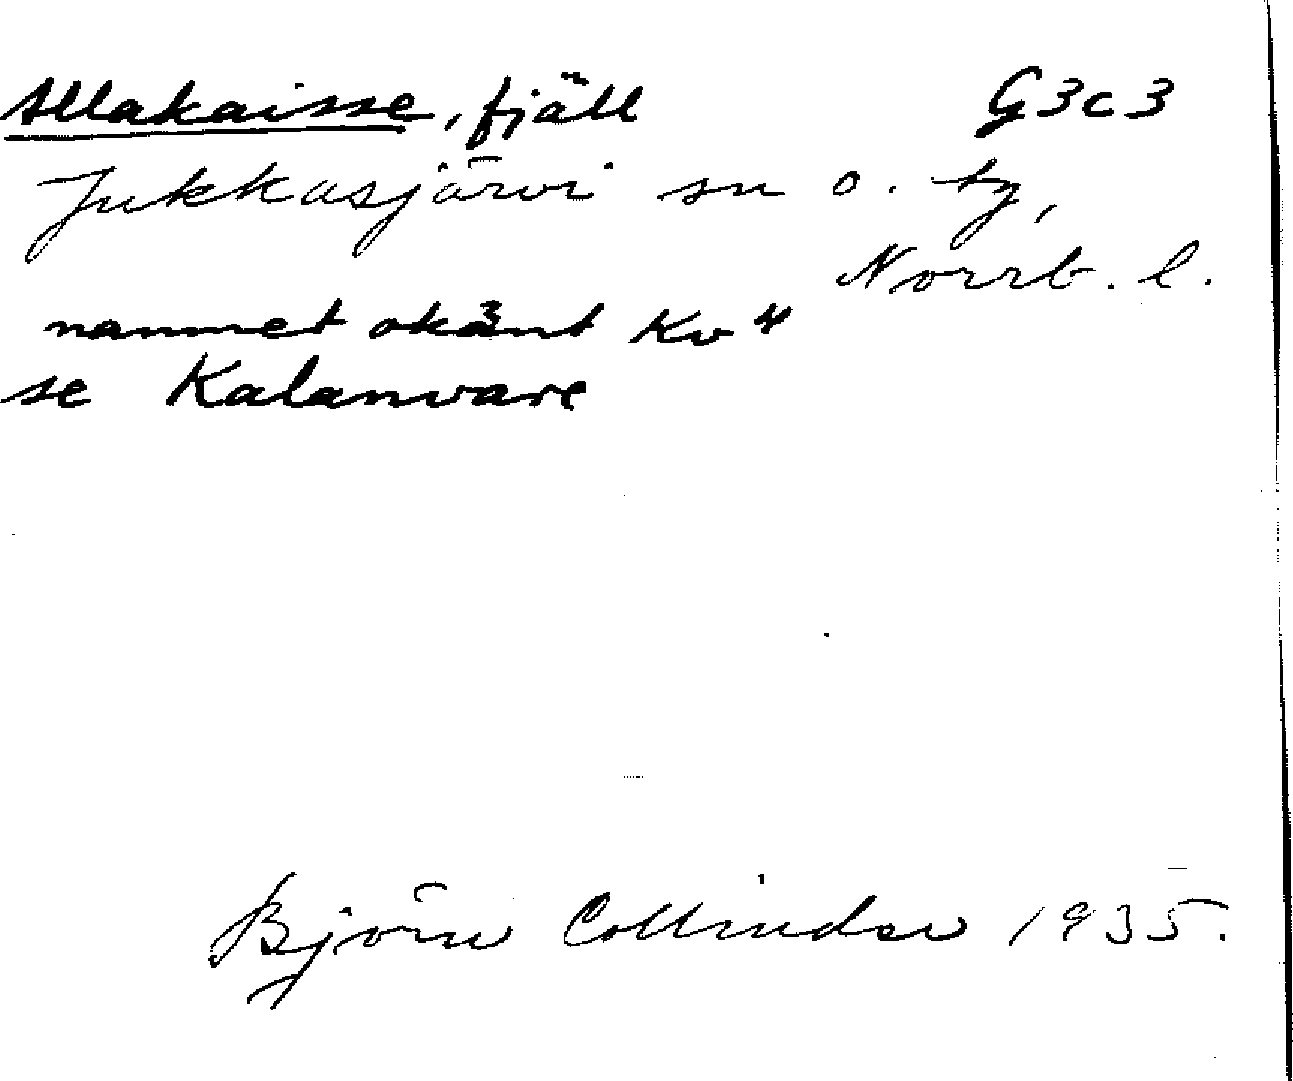 Allakaisse, fjäll G3c3
Jukkasjärvi sn o. tg,
Norrb. l.
namnet okänt Kv 4
se Kalanvare
Björn Collinder 1935.